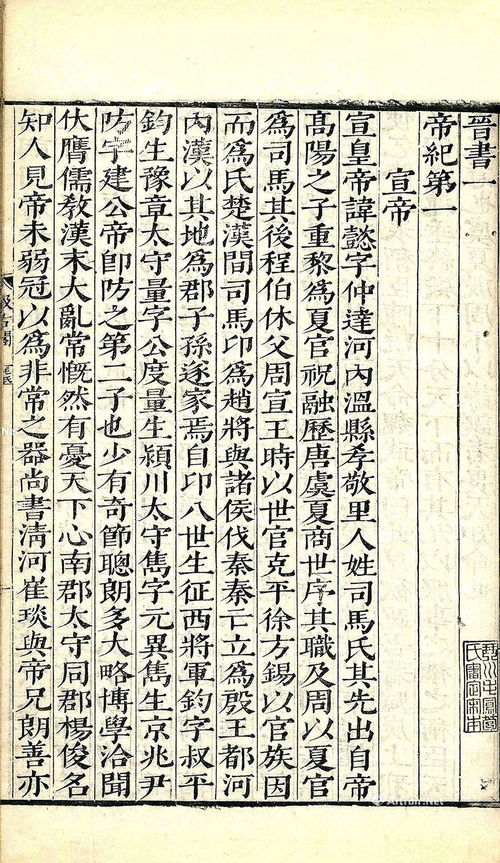 晉書一
帝紀第一
宣帝
宣皇帝諱懿字仲達河內溫縣孝敬里人姓司馬氏其先出自帝
高陽之子重黎爲夏官祝融歷唐虞夏商世序其職及周以夏官
爲司馬其後程伯休父周宣王時以世官克平徐方錫以官族因
而爲氏楚漢間司馬卬爲趙將與諸侯伐秦秦亡立爲殷王都河
內漢以其地爲郡子孫遂家焉自卬八世生征西將軍鈞字叔平
鈞生豫章太守量字公度量生潁川太守雋字元異雋生京兆尹
防字建公帝卽防之第二子也少有奇節聰朗多大略博學洽聞
伏膺儒敎漢末大亂常慨然有憂天下心南郡太守同郡楊俊名
知人見帝未弱冠以爲非常之器尚書淸河崔琰與帝兄朗善亦